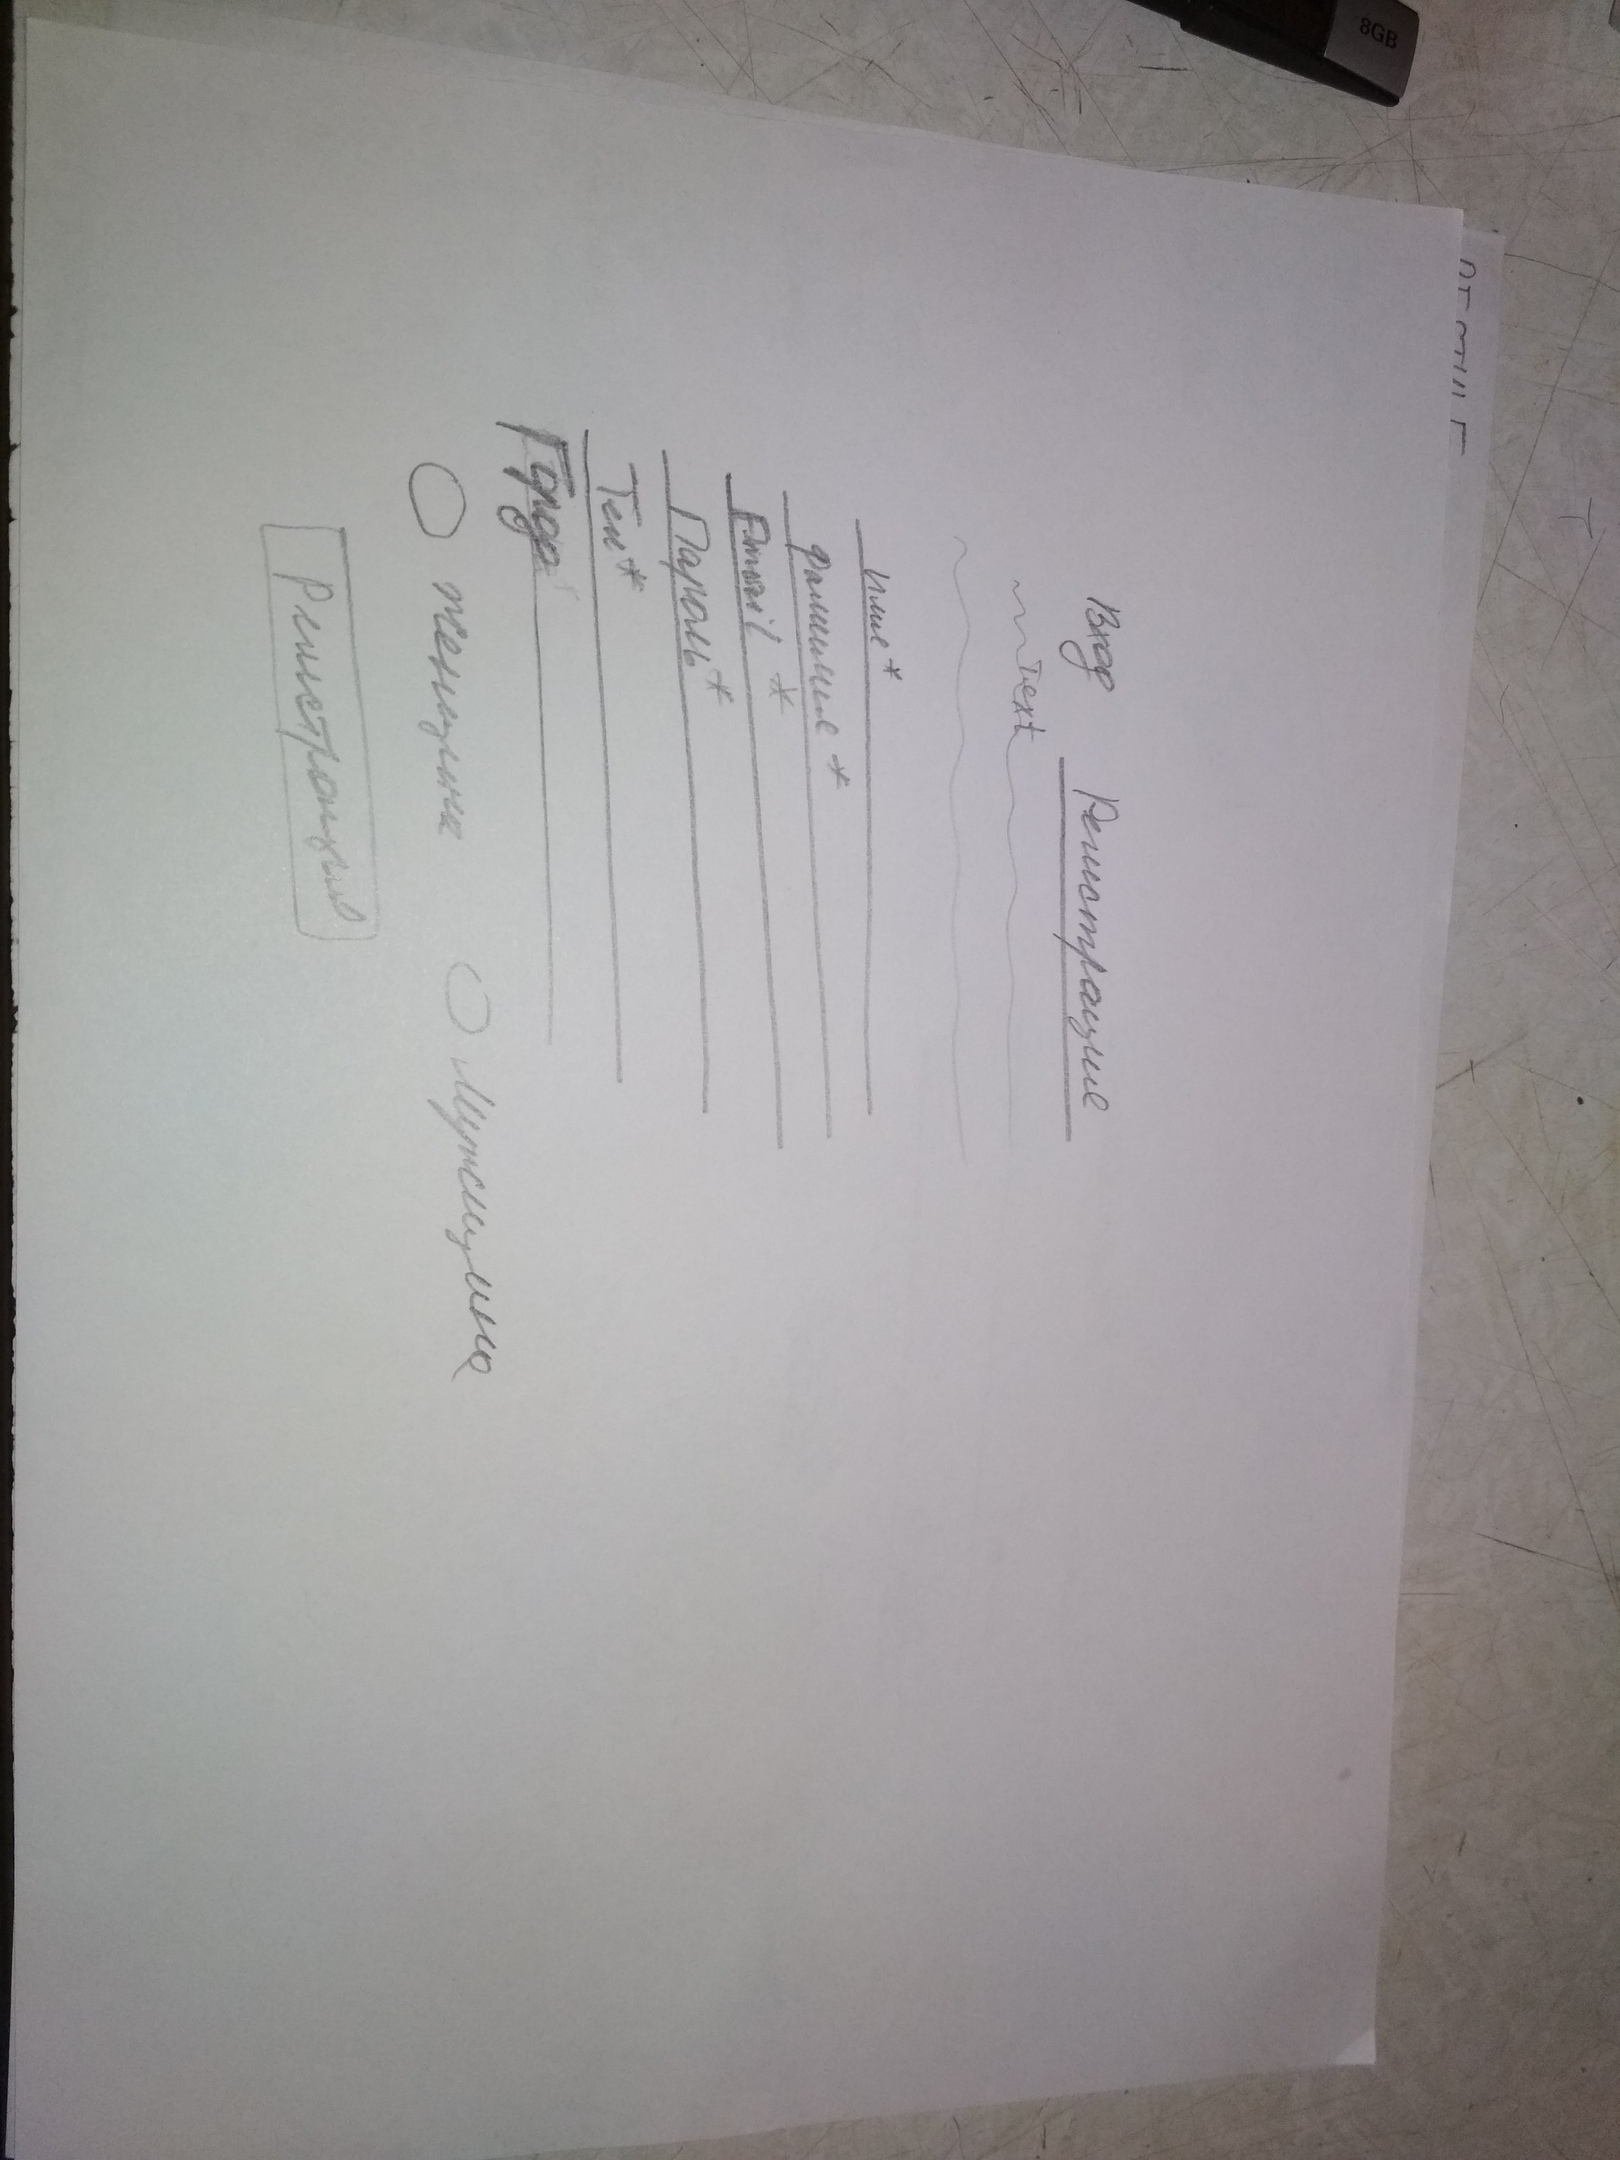 Вход Регистрация
Text
Имя*
Фамилия*
Email*
Пароль*
Тел*
Город
Женщина Мужщина
Регистрация
8GB